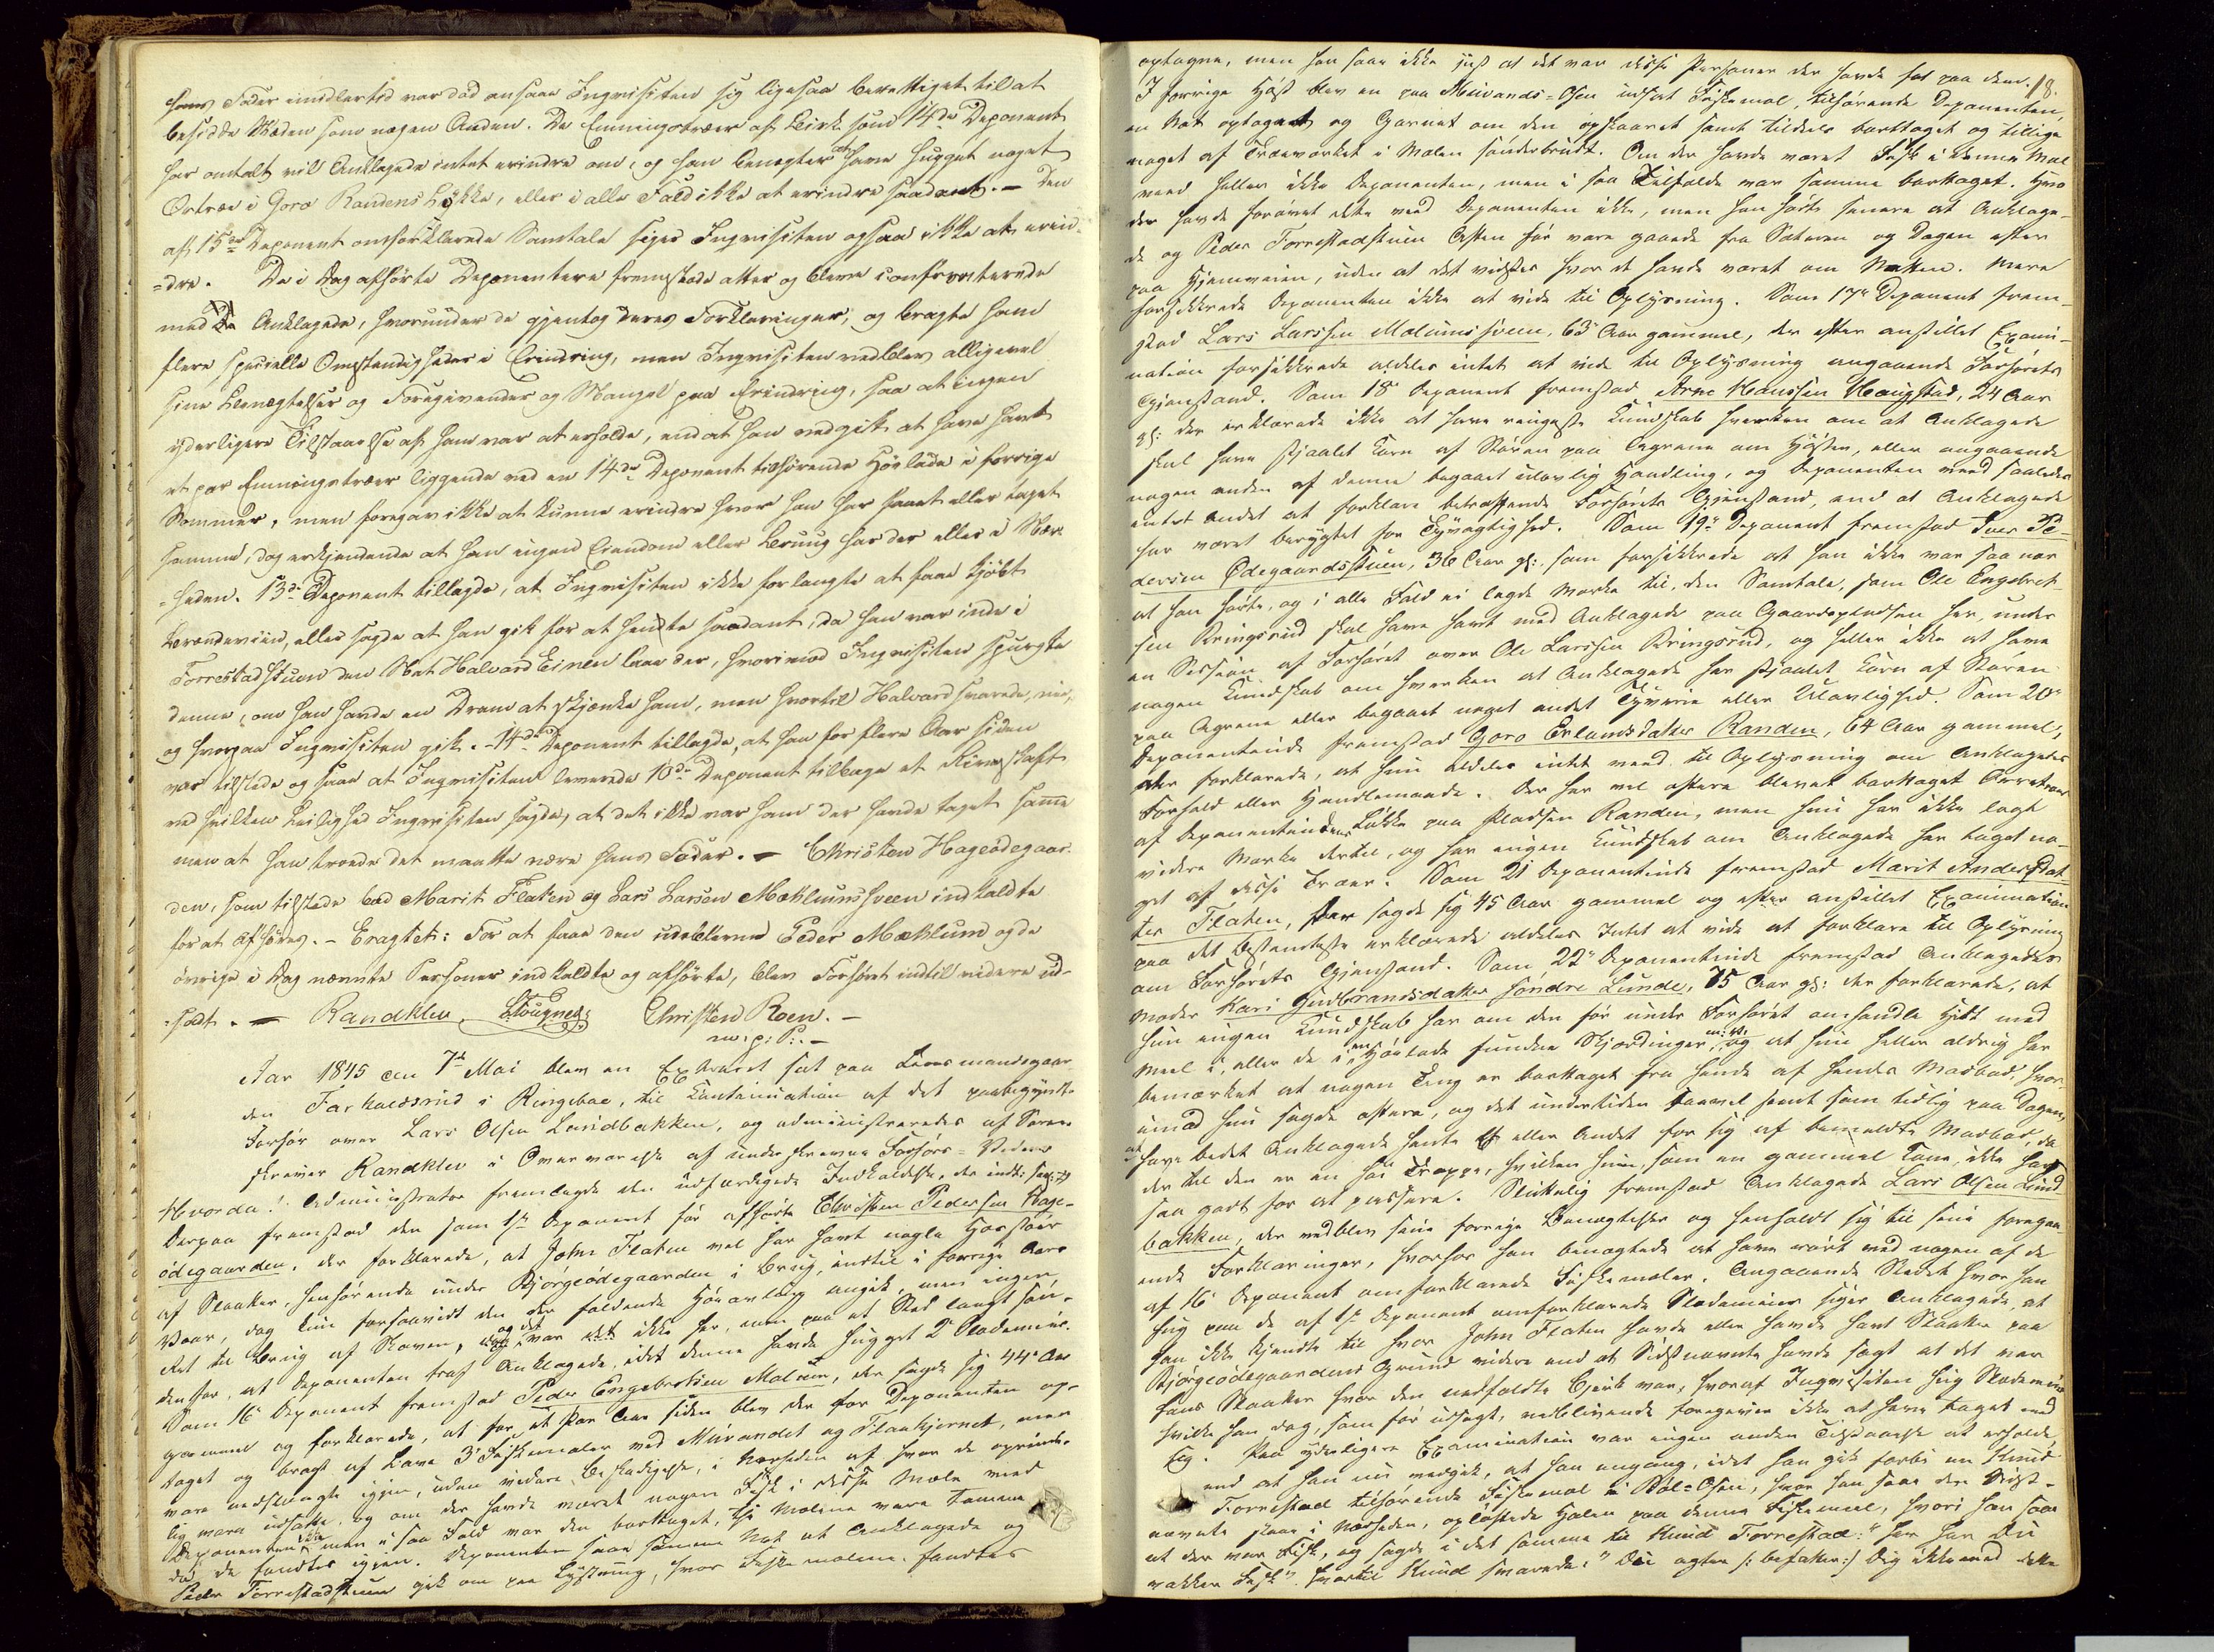 hans Fader imidlertid var død ansaae Inqvisiten sig ligesaa berettiget til at
besidde Støden som nogen Anden. De Emningstræer af Birk som 14de Deponent
har omtalt vil Anklagede intet erindre om, og han benegter at have hugget noget
Oretræ i Goro Randens Løkke, eller i alle Fald ikke at erindre saadant. – Den
af 15de Deponent omforklarede Samtale siger Inqvisiten ogsaa ikke at erin-
=dre. De i Dag afhørte Deponentere fremstode atter og bleve confronterede
med Anklagede, hvorunder de gjentog deres Forklaringer, og bragte ham
flere specielle Omstændigheder i Erindring, men Inqvisiten vedblev alligevel
sine Benegtelser og Foregivender og Mangel paa Erindring, saa at ingen
yderligere Tilstaaelse af ham var at erholde, end at han vedgik at have havt
et par Emningstræer liggende ved en 14de Deponent tilhørende Høelade i forrige
Sommer, men foregav ikke at kunne erindre hvor han har faaet eller taget
samme, dog erkjendende at han ingen Eiendom eller Brug har der eller i Nær-
=heden. 13de Deponent tillagde, at Inqvisiten ikke forlangte at faae kjøbt
Brændeviin, eller sagde at han gik for at hente saadant, da han var inde i
Forrestadstuen den Nat Halvord Einen laae der, hvorimod Inqvisiten spurgte
denne, om han havde en Dram at skjænke ham, men hvortil Halvord svarede, nei,
og hvorpaa Inqvisiten gik. – 14de Deponent tillagde, at han for flere Aar siden
var tilstede og saae at Inqvisiten leverede 10de Deponent tilbage et Riveskaft
ved hvilken Leilighed Inqvisiten sagde, at det ikke var ham der havde taget samme
men at han troede det maatte være hans Fader. – Christen Hageødegaar-
den, som tilstede bad Marit Flaten og Lars Larsen Mæhlumssveen indkaldte
for at afhøres. – Eragtet: For at faae den udeblevne Peder Mæhlum og de
øvrige i Dag nævnte Personer indkaldte og afhørte, blev Forhøret indtil videre ud-
=sadt. – Randklev, Christen Roen. –
m. p: P: –
Aar 1845 den 7de Mai blev en Extraret sat paa Lensmandsgaar
den Farkalsrud i Ringeboe, til Continuation af det paabegyndte
Forhør over Lars Olsen Lundbakken, og administreredes af Soren-
skriver Randklev i Overværelse af underskrevne Forhørs=Vidner
Hvorda! Administrator fremlagde den udfærdigede Indkaldelse, der indt:
Derpaa fremstod den som 1ste Deponent før afhørte Christen Pedersen Hage-
ødegaarden, der forklarede, at John Flaten vel har havt nogle
af Slaaker, henhørende under Bjørgeødegaarden i Brug, indtil i forrige Aars
Vaar, dog kun forsaavidt den der faldende Høeavling angik, men ingen
Ret til Brug af Skoven, og det var ikke her, men paa et Sted langt søn-
denfor, at Deponenten traf Anklagede idet denne havde hugget 2 Slædemeier.
Som 16' Deponent fremstod Peder Engebretsen Melum, der sagde sig 44 Aar
gammel og forklarede, at for et Par Aar siden blev der for Deponenten op-
taget og bragt af Lave 3' Fiskemæler ved Muvandet og Flaakjernet, men
vare nedslængte igjen, uden videre Beskadigelse, i Nærheden af hvor de oprinde-
lig vare udsatte, og om der havde været nogen Fisk i disse Mæle veed
Deponenten ikke men i saa Fald var den borttaget, thi Mælene vare tomme
da de fandtes igjen. Deponenten saae samme Nat at Anklagede og
Peder Forrestadstuen gik om paa Lystring, hvor Fiskemælene fandtes
18.
optagne, men han saae ikke just at det var disse Personer der havde fat paa dem.
I forrige Høst blev en paa Muvands=Osen udsat Fiskemæl, tilhørende Deponenten,
en Nat optaget og Garnet om den opskaaret samt tildeels borttaget og tillige
noget af Træværket i Mælen sønderbrudt. Om der havde været Fisk i denne Mæl
veed heller ikke Deponenten, men i saa Tilfælde var samme borttaget. Hvo
der havde forøvet dette veed Deponenten ikke, men han hørte senere at Anklage-
de og Peder Forrestadstuen Aften før vare gaaede fra Sæteren og Dagen efter
paa Hjemveien, uden at det vidstes hvor de havde været om Natten. Mere
forsikkrede Deponenten ikke at vide til Oplysning. Som 17' Deponent frem-
stod Lars Larssen Mælumssveen, 63 Aar gammel, der efter anstillet Exami-
nation forsikkrede aldeles intet at vide til Oplysning angaaende Forhørets
Gjenstand. Som 18' Deponent fremstod Arne Hanssen Haugstad, 24 Aar
gl: der erklærede ikke at have ringeste Kundskab hverken om at Anklagede
skal have stjaalet Korn af Støren paa Agrene om Høsten, eller angaaende
nogen anden af denne begaaet ulovlig Handling, og Deponenten veed saaledes
intet andet at forklare betræffende Forhørets Gjenstand, end at Anklagede
har været berygtet for Tyvagtighed. Som 19' Deponent fremstod Iver Pe-
dersen Ødegaardsstuen, 36 Aar gl:, som forsikkrede at han ikke var saa nær
at han hørte, og i alle Fald ei lagde Mærke til, den Samtale, som Ole Engebret-
sen Bringsrud skal have havt med Anklagede paa Gaardspladsen her, under
en Session af Forhøret over Ole Larssen Bringsrud, og heller ikke at have
nogen Kundskab om hverken at Anklagede har stjaalet Korn af Støren
paa Agrene eller begaaet noget andet Tyverie eller Ulovlighed. Som 20'
Deponentinde fremstod Goro Erlandsdatter Randen, 64 Aar gammel,
der forklarede, at hun aldeles intet veed til Oplysning om Anklagedes
Forhold eller Handlemaade. Der har vel oftere blevet borttaget Oretræer
af Deponentindens Løkke paa Pladsen Randen, men hun har ikke lagt
videre Mærke dertil, og har ingen Kundskab om Anklagede har taget no-
get af disse Træer. Som 21 Deponentinde fremstod Marit Andersdat-
ter Flaten, der sagde sig 45 Aar gammel og efter anstillet Examination
paa det Bestemteste erklærede aldeles Intet at vide at forklare til Oplysning
om Forhørets Gjenstand. Som 22' Deponentinde fremstod Anklagedes
Moder Kari Gudbrandsdatter søndre Lunde, 75 Aar gl: der forklarede, at
hun ingen Kundskab har om den før under Forhøret omhandlede Hitt med
Meel i, eller de i en Høelade fundne Skjærdinger m: v: og at hun heller aldrig har
bemærket at nogen Ting er borttaget fra hende af hendes Madbod, hvor-
imod hun sagde oftere, og det undertiden saavel sent som tidlig paa Dagen,
at have bedet Anklagede hente Et eller Andet for sig af bemeldte Madbod, da
der til den er en høi Trappe, hvilken hun, som en gammel Kone, ikke har
saa godt for at passere. Sluttelig fremstod Anklagede Lars Olsen Lund-
bakken, der vedblev sine forrige Benægtelser og henholdt sig til sine foregaa-
ende Forklaringer, hvorhos han benægtede at have rørt ved nogen af de
af 16' Deponent omforklarede Fiskemæler. Angaaende Stedet hvor han
hug paa de af 1ste Deponent omforklarede Slædemeier siger Anklagede, at
han ikke kjendte til hvor John Flaten havde eller havde havt Slaaker paa
Bjørgeødegaardens Grund videre end at Sidstnævnte havde sagt at det var
hans Slaaker hvor den nedfaldte Bjerk var, hvoraf Inqvisiten hug Slædemeier
hvilke han dog, som før udsagt, vedblivende foregiver ikke at have taget med
sig. Paa yderligere Examination var ingen anden Tilstaaelse at erholde,
end at han nu vedgik, at han engang, idet han gik forbi en Knud
Forrestad tilhørende Fiskemæl i Bøl=Osen, hvor han saae den Sidst-
nævnte staae i Nærheden, opløftede Halen paa denne Fiskemæl, hvori han saae
at der var Fisk, og sagde i det samme til Knud Forrestad: "her har Du
vakker Fisk". Hvortil Knud svarede: "Du agter /: befatter:/ Dig ikke med dette